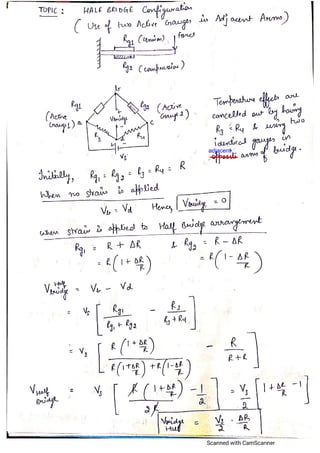 TOPIC : HALF BRIDGE Configuration
( Use of two Active Gauges in Adjacent Arms)
Rg1 (tension) Force
Rg2 (compression)
b
Rg1 Rg2 (Active Gauge 2)
(Active Gauge 1) a Vbridge c
R3 R4
d
Vs
Temperature effects are
cancelled out by having
R3 = R4 & using two
identical gauges in
adjacent
opposite arms of bridge.
Initially, Rg1 = Rg2 = R3 = R4 = R
When no strain is applied
Vb = Vd Hence, Vbridge = 0
when strain is applied to Half Bridge arrangement
Rg1 = R + ΔR & Rg2 = R − ΔR
= R(1 + ΔR/R) = R(1 − ΔR/R)
V half bridge = Vb − Vd
= Vs [ Rg1/(Rg1 + Rg2) − R3/(R3 + R4) ]
= Vs [ R(1 + ΔR/R) / (R(1+ΔR/R) + R(1−ΔR/R)) − R/(R+R) ]
V Half Bridge = Vs [ R(1 + ΔR/R)/2R − 1/2 ] = Vs/2 [ 1 + ΔR/R − 1 ]
Vbridge Half = Vs/2 · ΔR/R
Scanned with CamScanner